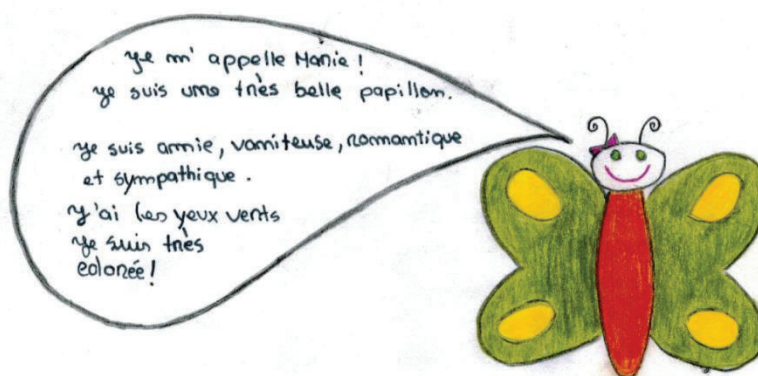 Je m'appelle Marie!
Je suis une très belle papillon.
Je suis amie, vaniteuse, romantique
et sympathique.
J'ai les yeux verts
Je suis très
colorée!